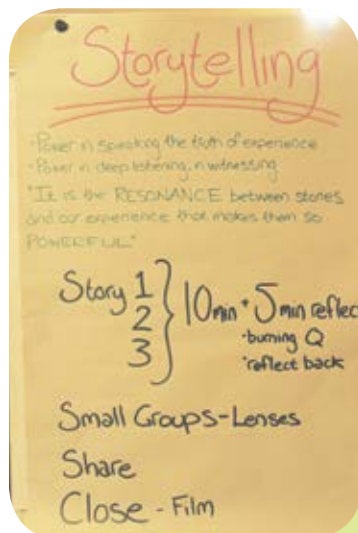 Storytelling
-Power in speaking the truth of experience
-Power in deep listening, in witnessing
"It is the RESONANCE between stories
and our experience that makes them so
POWERFUL"
Story 1 } 10 min + 5 min reflec
2 -burning Q
3 •reflect back
Small Groups-Lenses
Share
Close - Film